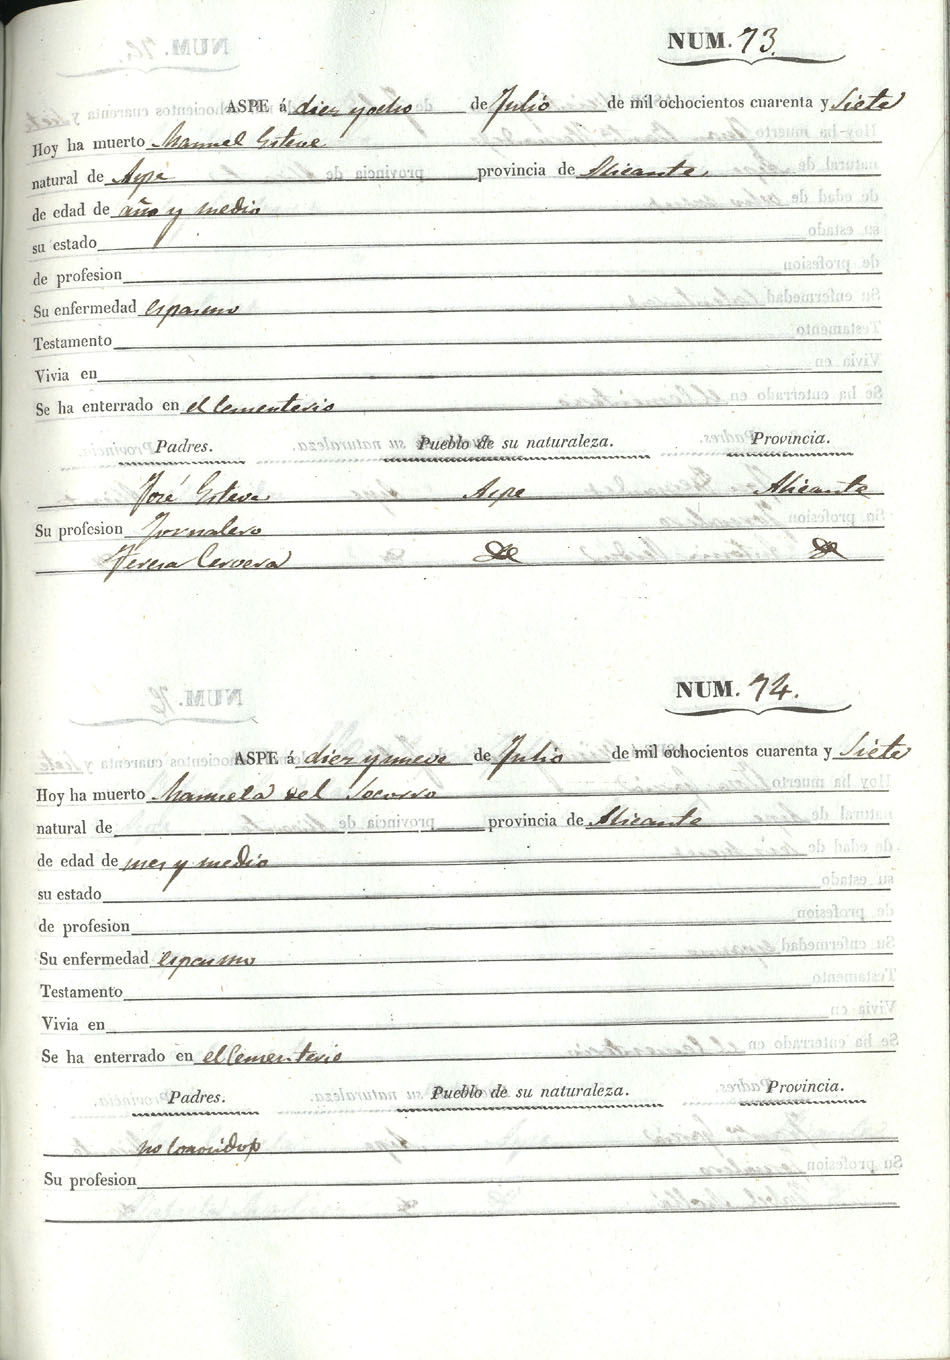 NUM. 73.
ASPE á diez y ocho de Julio de mil ochocientos cuarenta y Siete
Hoy ha muerto Manuel Esteve
natural de Aspe provincia de Alicante
de edad de año y medio
su estado
de profesion
Su enfermedad espasmo
Testamento
Vivia en
Se ha enterrado en el Cementerio
Padres. Pueblo de su naturaleza. Provincia.
José Esteve Aspe Alicante
Su profesion Jornalero
Teresa Cervera
NUM. 74.
ASPE á diez y nueve de Julio de mil ochocientos cuarenta y Siete
Hoy ha muerto Manuela del Socorro
natural de provincia de Alicante
de edad de mes y medio
su estado
de profesion
Su enfermedad espasmo
Testamento
Vivia en
Se ha enterrado en el Cementerio
Padres. Pueblo de su naturaleza. Provincia.
no conocidos
Su profesion